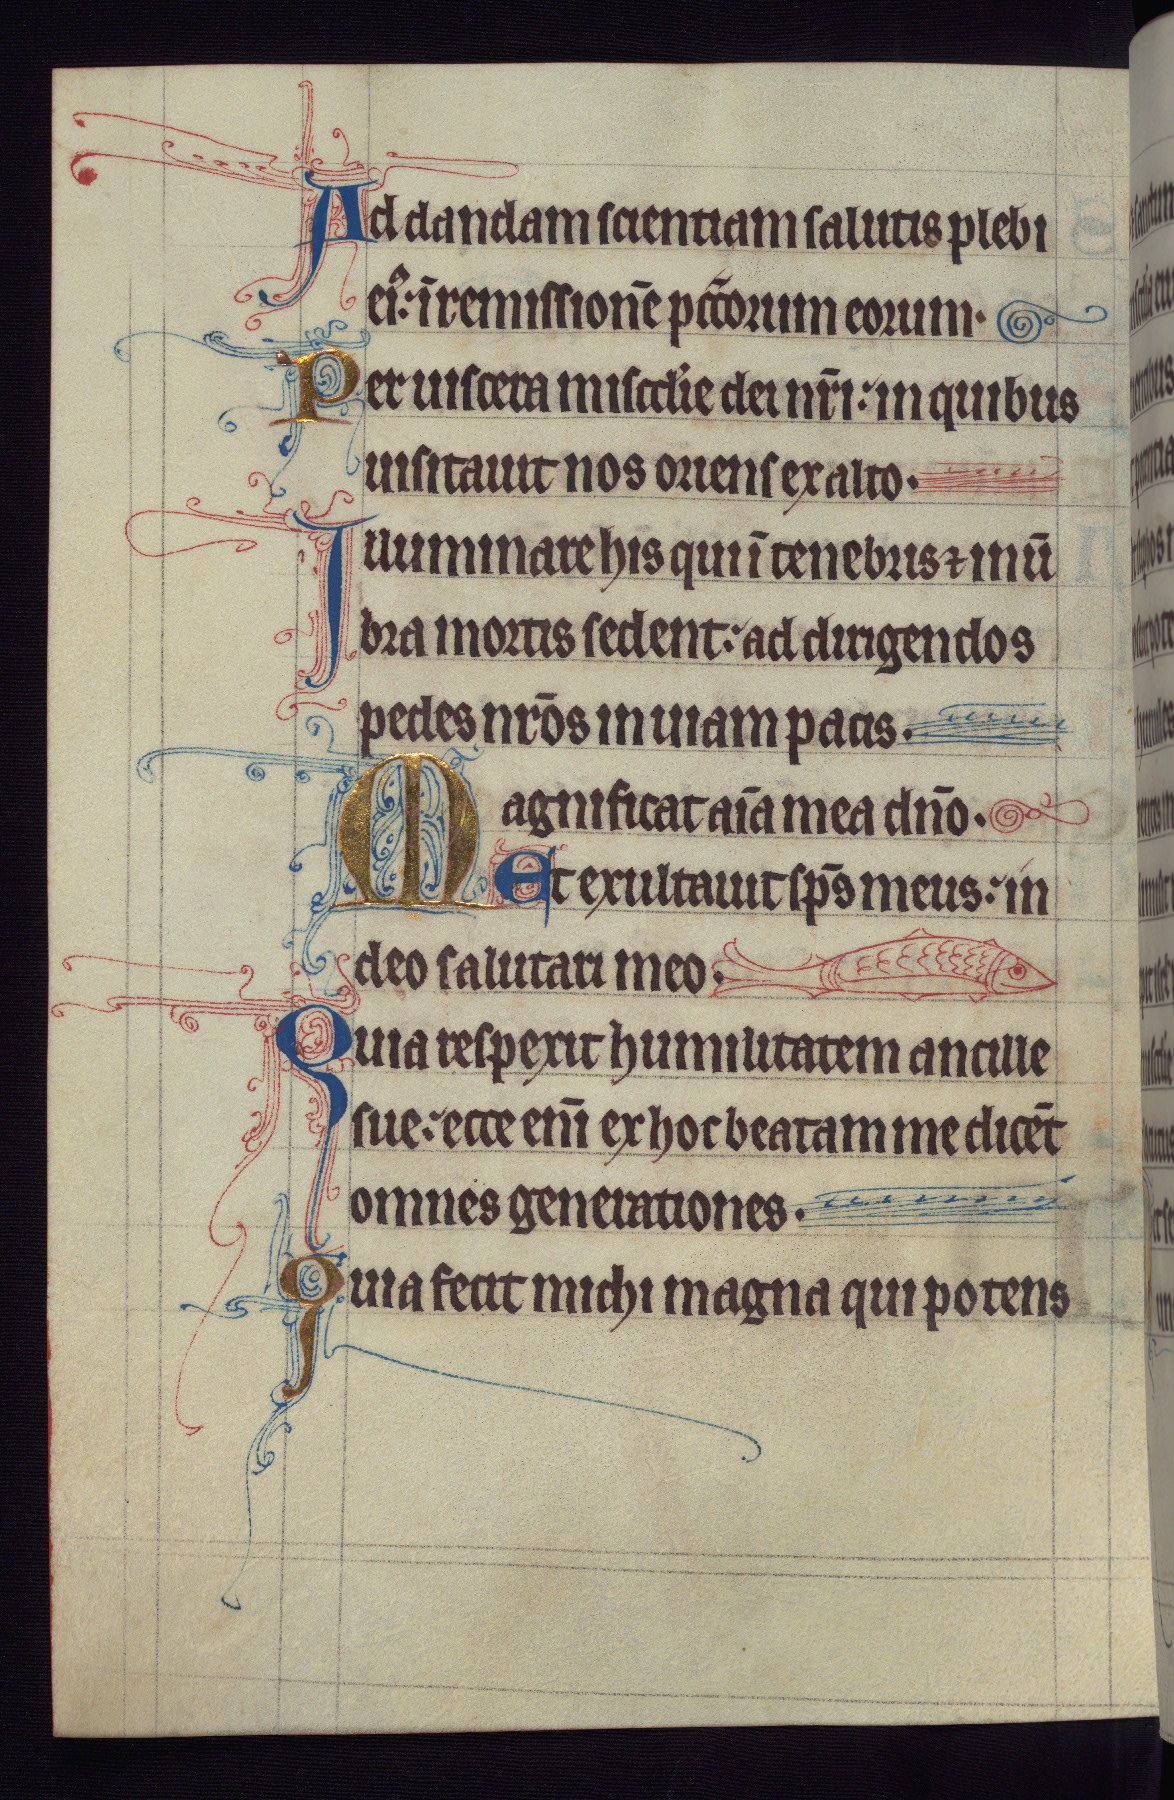 Ad dandam scientiam salutis plebi
ei⁹: ī remissionē pcc̄orum eorum.
Per uiscera misc̄die dei nr̄i: in quibus
uisitauit nos oriens ex alto.
Illuminare his qui ī tenebris ⁊ in ū
bra mortis sedent: ad dirigendos
pedes nr̄os in uiam pacis.
Magnificat aīa mea dn̄o.
Et exultauit sp̄s meus: in
deo salutari meo.
Quia respexit humilitatem ancille
sue: ecce enī ex hoc beatam me dicēt
omnes generationes.
Quia fecit michi magna qui potens